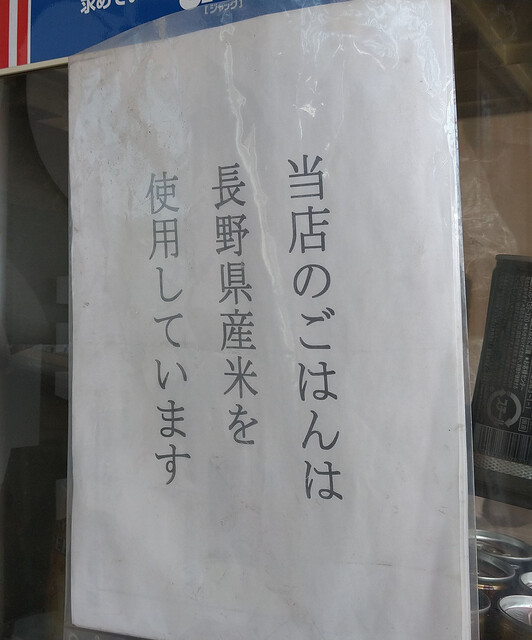 [ジャック]
当店のごはんは
長野県産米を
使用しています